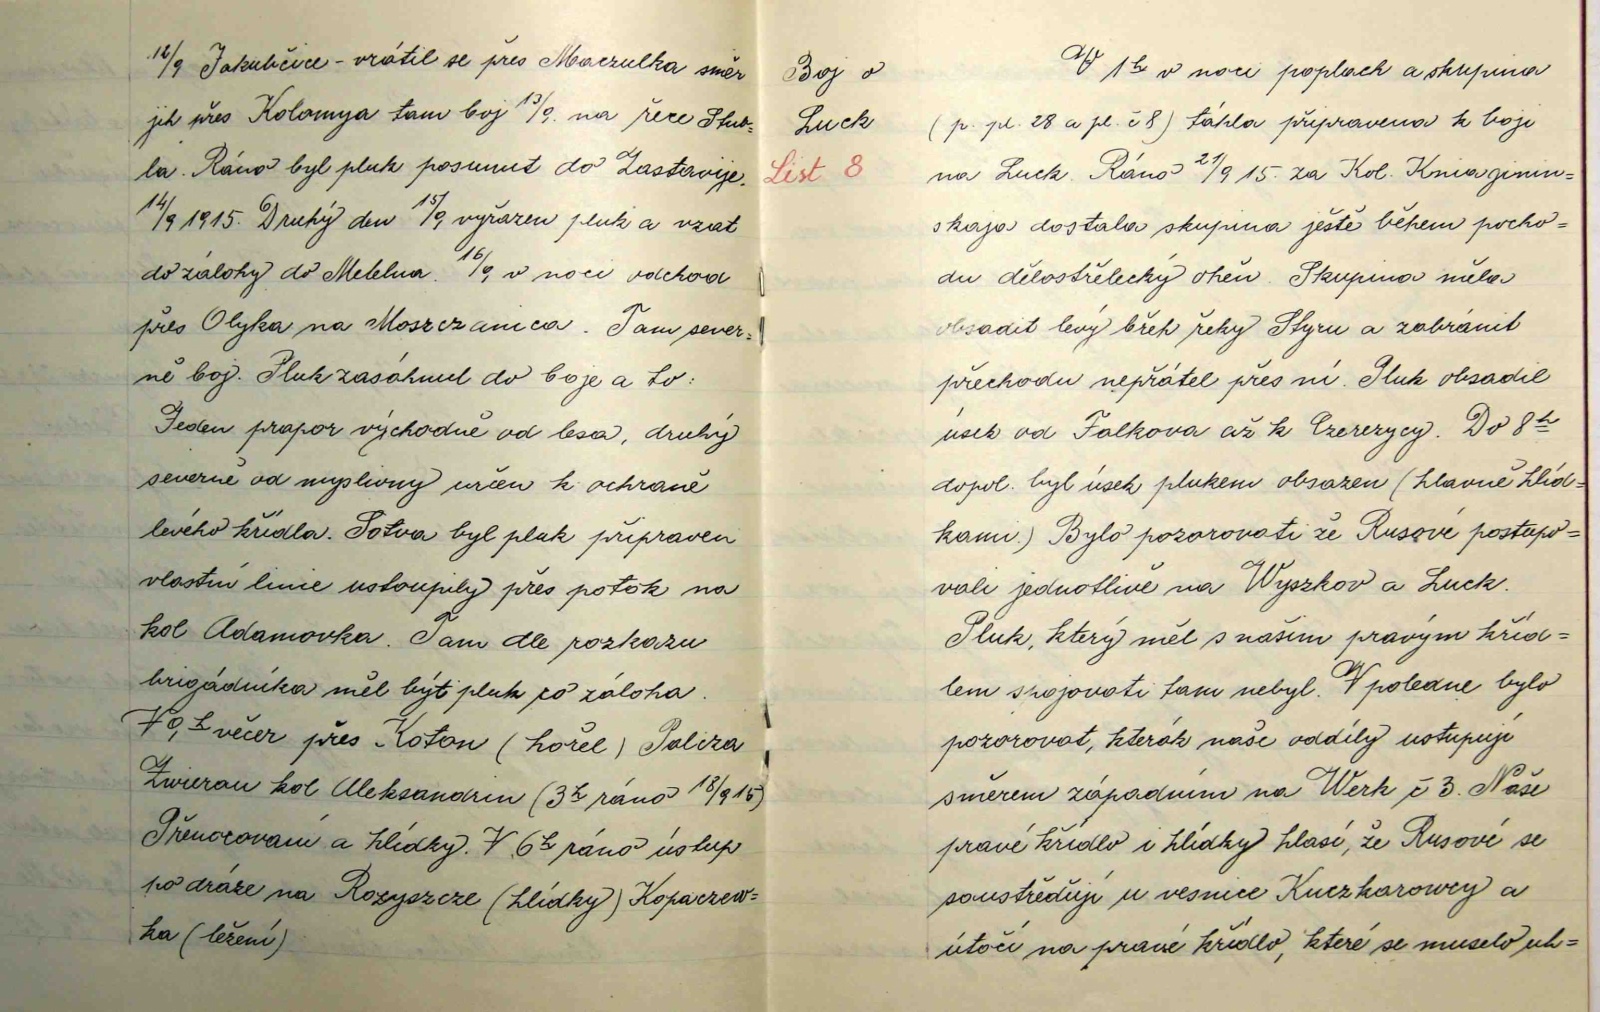 12/9 Jakubčice - vrátil se přes Maczulka směr
jih přes Kolomya tam boj 13/9. na řece Stub=
la. Ráno byl pluk posunut do Zastavije.
14/9 1915. Druhý den 15/9 vyřazen pluk a vzat
do zálohy do Metelna. 16/9 v noci odchod
přes Olyka na Moszczanica. Tam sever=
ně boj. Pluk zasáhnul do boje a to:
Jeden prapor východně od lesa, druhý
severně od myslivny určen k ochraně
levého křídla. Sotva byl pluk připraven
vlastní linie ustoupily přes potok na
kol Adamovka. Tam dle rozkazu
brigádníka měl býti pluk co záloha.
V 9h večer přes Koton (hořel) Polcza
Zwierau kol Aleksandrin (3h ráno 18/9 15)
Přenocování a hlídky. V 6h ráno ústup
po dráze na Rozyszcze (hlídky) Kopaczew=
ka (ležení)
Boj o
Luck
List 8
V 1h v noci poplach a skupina
(p. pl. 28 a pl. č 8) táhla připravena k boji
na Luck. Ráno 21/9 15. za Kol. Kniaginin=
skaja dostala skupina ještě během pocho=
du dělostřelecký oheň. Skupina měla
obsadit levý břeh řeky Styru a zabránit
přechodu nepřátel přes ní. Pluk obsadil
úsek od Falkova až k Czerezycy. Do 8h
dopol. byl úsek plukem obsazen (hlavně hlíd=
kami.) Bylo pozorovati že Rusové postupo=
vali jednotlivě na Wyszkov a Luck.
Pluk, který měl s našim pravým kříd=
lem spojovati tam nebyl. V poledne bylo
pozorovat, kterák naše oddíly ustupují
směrem západním na Werk č 3. Naše
pravé křídlo i hlídky hlasí, že Rusové se
soustředují u vesnice Kuczkarowcy a
útočí na pravé křídlo, které se muselo uh=